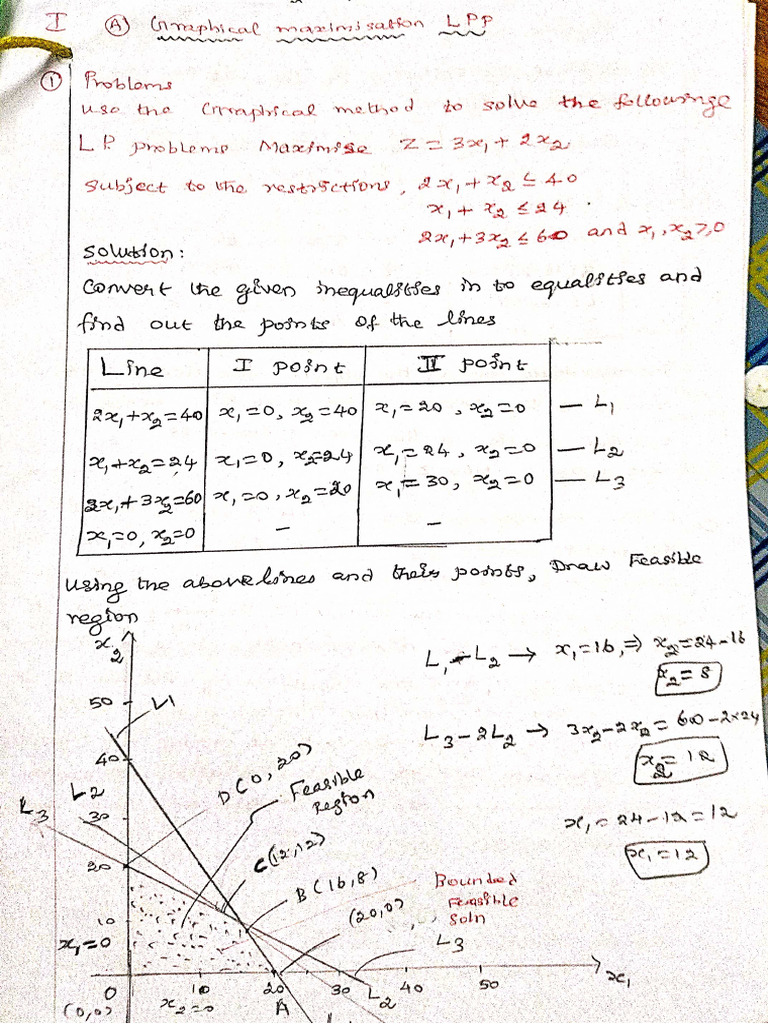 I (A) Graphical maximisation LPP
① Problems
Use the Graphical method to solve the followinge
L.P. problems Maximise Z = 3x₁ + 2x₂
Subject to the restrictions, 2x₁ + x₂ ≤ 40
x₁ + x₂ ≤ 24
2x₁ + 3x₂ ≤ 60 and x₁, x₂ ≥ 0
Solution:
Convert the given inequalities in to equalities and
find out the points of the lines
Line I point II point
2x₁+x₂=40 x₁=0, x₂=40 x₁=20, x₂=0 — L₁
x₁+x₂=24 x₁=0, x₂=24 x₁=24, x₂=0 — L₂
2x₁+3x₂=60 x₁=0, x₂=20 x₁=30, x₂=0 — L₃
x₁=0, x₂=0 – –
Using the above lines and their points, Draw Feasible
region
x₂
L₁-L₂ → x₁=16, ⇒ x₂=24-16
x₂=8
50 L1
L₃-2L₂ → 3x₂-2x₂=60-2×24
x₂=12
40
D(0,20)
Feasible
Region
L₂
L₃ 30
x₁=24-12=12
x₁=12
20
C(12,12)
B(16,8)
Bounded
Feasible
Soln
10
(20,0)
x₁=0
L₃
0 10 20 30 40 50 x₁
(0,0) x₂=0 A L₂